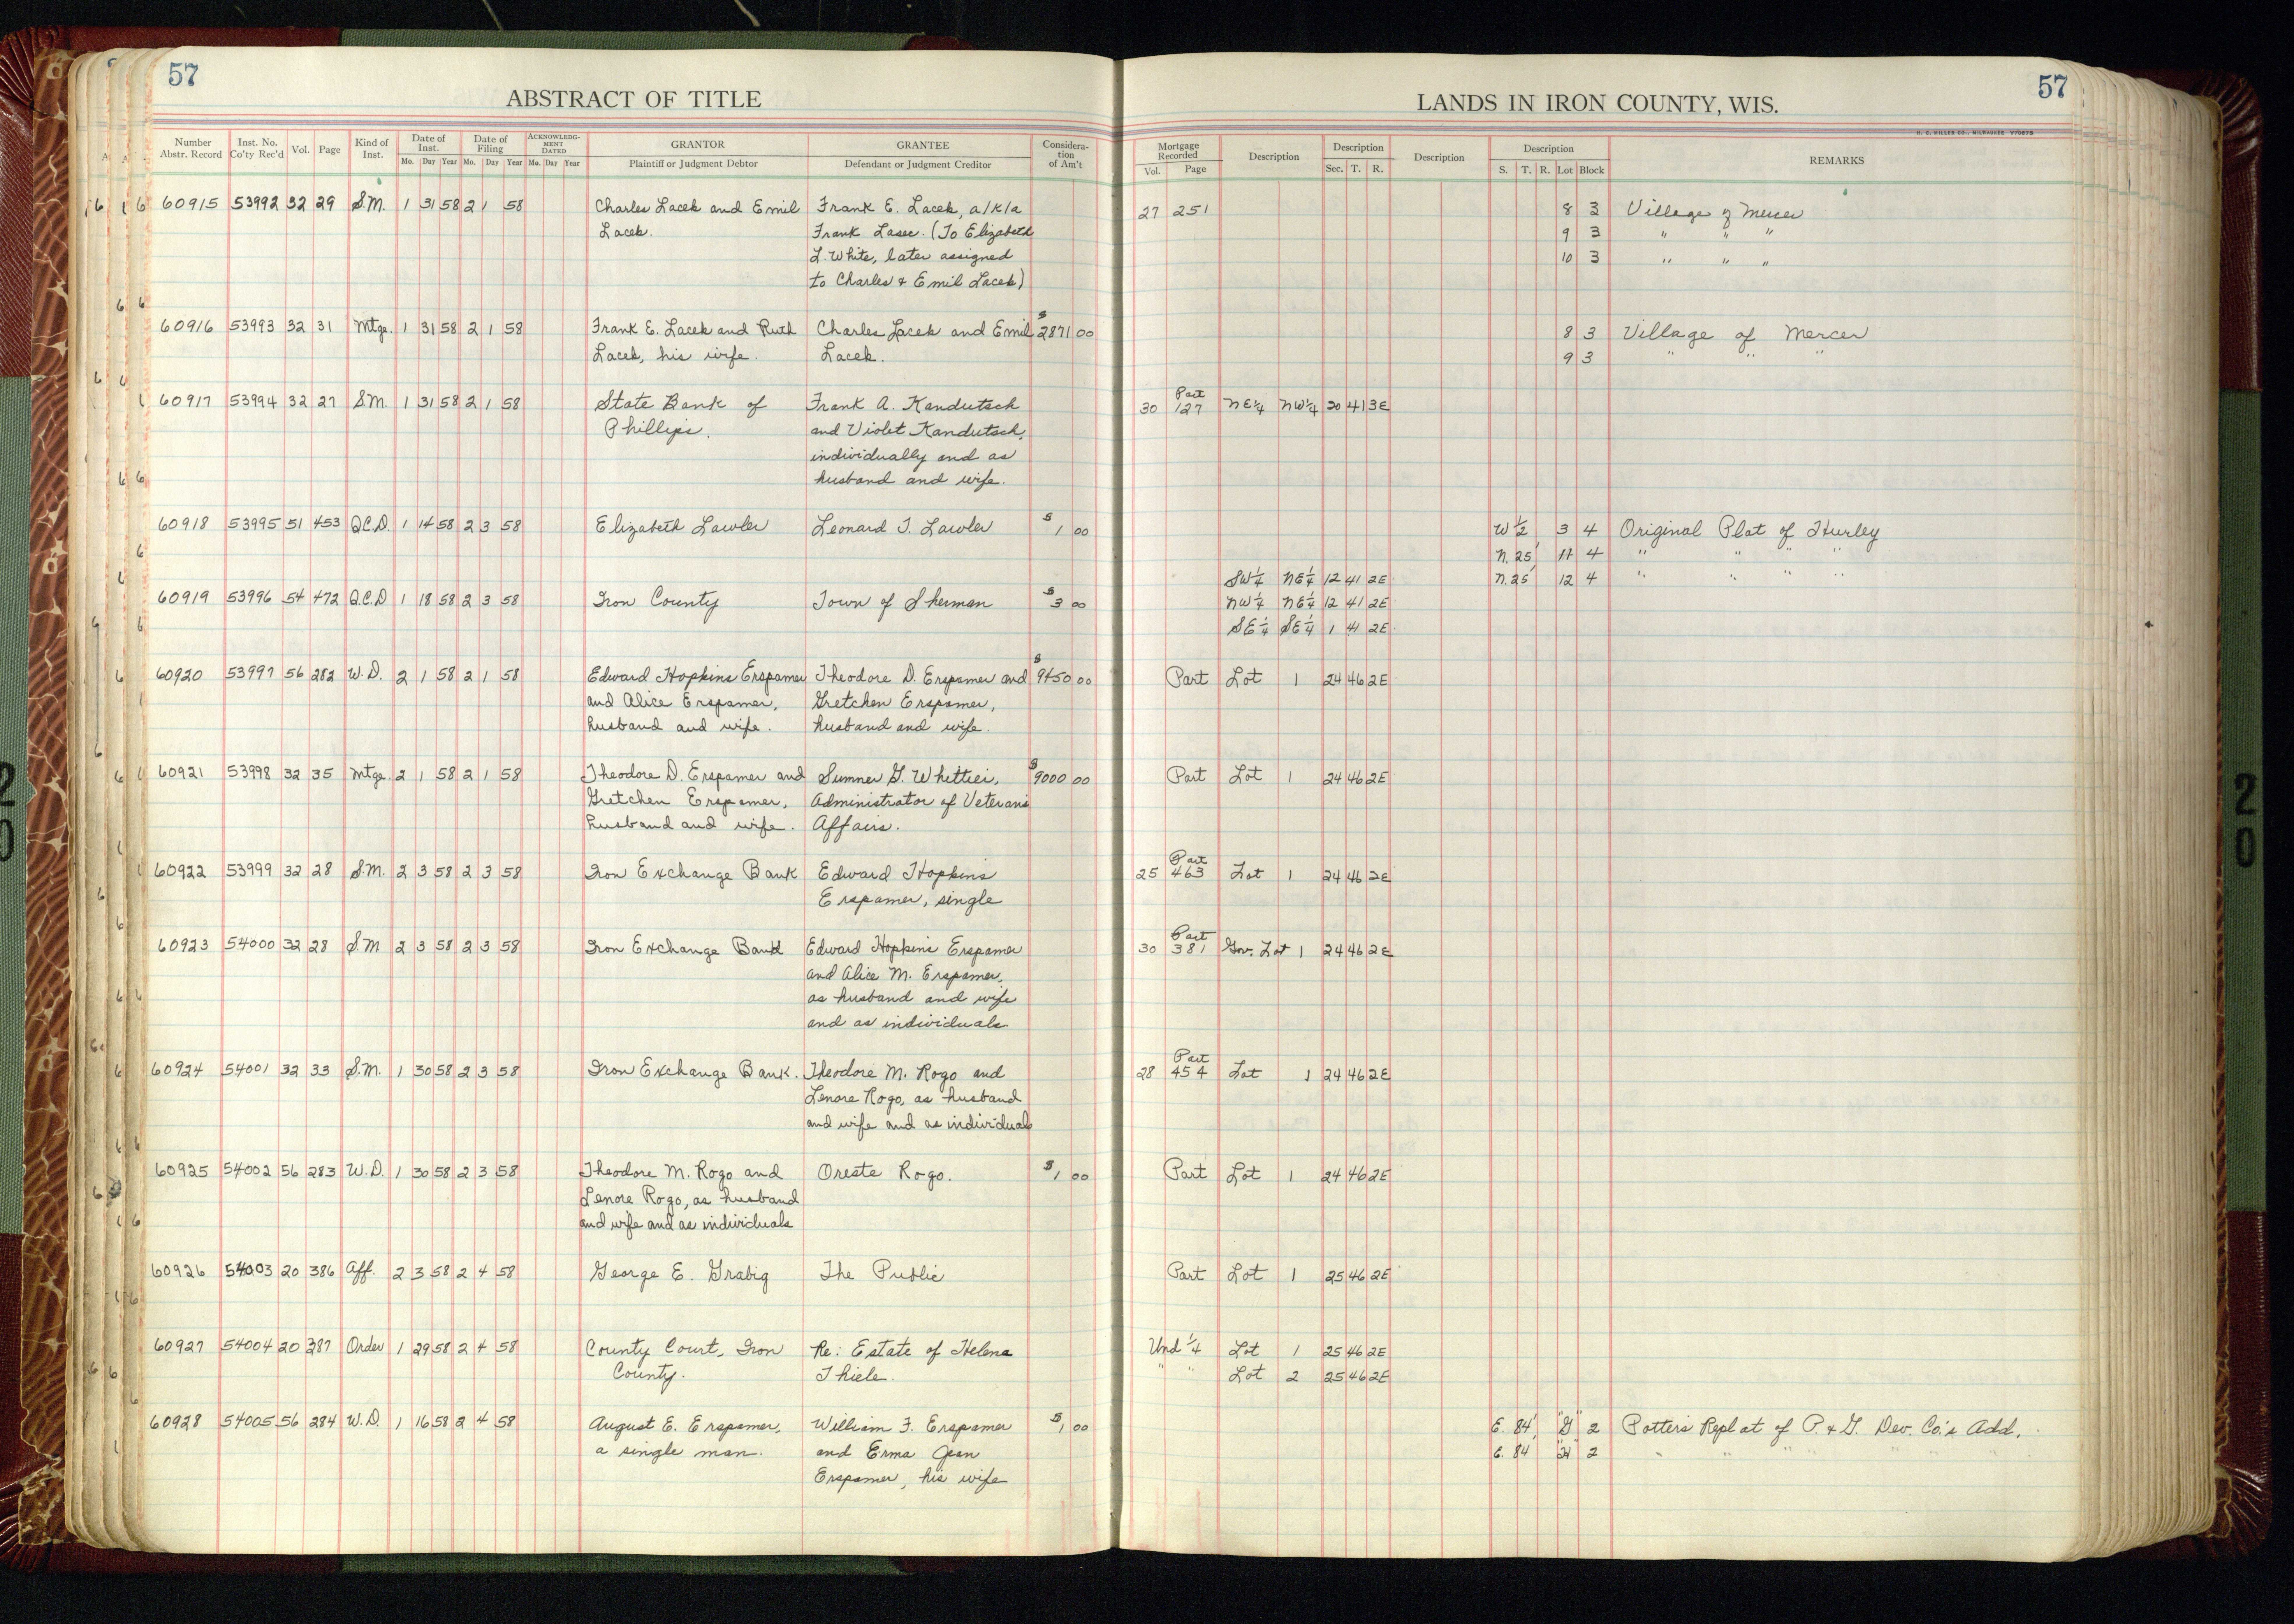 57
ABSTRACT OF TITLE
Number Abstr. Record | Inst. No. Co'ty Rec'd | Vol. | Page | Kind of Inst. | Date of Inst. Mo. Day Year | Date of Filing Mo. Day Year | ACKNOWLEDGMENT DATED Mo. Day Year | GRANTOR Plaintiff or Judgment Debtor | GRANTEE Defendant or Judgment Creditor | Consideration of Am't
57
LANDS IN IRON COUNTY, WIS.
H. C. MILLER CO., MILWAUKEE
Mortgage Recorded Vol. Page | Description | Description Sec. T. R. | Description | Description S. T. R. Lot Block | REMARKS
60915 53992 32 29 S.M. 1 31 58 2 1 58 Charles Lacek and Emil Frank E. Lacek, a/k/a 27 251 8 3 Village of Mercer
Lacek. Frank Lasec. (To Elizabeth 9 3 " " "
L. White, later assigned 10 3 " " "
to Charles & Emil Lacek)
60916 53993 32 31 Mtge. 1 31 58 2 1 58 Frank E. Lacek and Ruth Charles Lacek and Emil $2871 00 8 3 Village of Mercer
Lacek, his wife. Lacek. 9 3 " " "
60917 53994 32 27 S.M. 1 31 58 2 1 58 State Bank of Frank A. Kandutsch 30 Part 127 NE¼ NW¼ 20 41 3E
Phillips. and Violet Kandutsch,
individually and as
husband and wife.
60918 53995 51 453 Q.C.D. 1 14 58 2 3 58 Elizabeth Lawler Leonard J. Lawler $1 00 W½ 3 4 Original Plat of Hurley
N. 25' 11 4 " " " "
N. 25' 12 4 " " " "
SW¼ NE¼ 12 41 2E
60919 53996 54 472 Q.C.D 1 18 58 2 3 58 Iron County Town of Sherman $3 00 NW¼ NE¼ 12 41 2E
SE¼ SE¼ 1 41 2E
60920 53997 56 282 W.D. 2 1 58 2 1 58 Edward Hopkins Erspamer Theodore D. Erspamer and $9450 00 Part Lot 1 24 46 2E
and Alice Erspamer, Gretchen Erspamer,
husband and wife. husband and wife.
60921 53998 32 35 Mtge. 2 1 58 2 1 58 Theodore D. Erspamer and Sumner G. Whittier, $9000 00 Part Lot 1 24 46 2E
Gretchen Erspamer, Administrator of Veterans
husband and wife. Affairs.
60922 53999 32 28 S.M. 2 3 58 2 3 58 Iron Exchange Bank Edward Hopkins 25 Part 463 Lot 1 24 46 2E
Erspamer, single
60923 54000 32 28 S.M 2 3 58 2 3 58 Iron Exchange Bank Edward Hopkins Erspamer 30 Part 381 Gov. Lot 1 24 46 2E
and Alice M. Erspamer,
as husband and wife
and as individuals
60924 54001 32 33 S.M. 1 30 58 2 3 58 Iron Exchange Bank. Theodore M. Rogo and 28 Part 454 Lot 1 24 46 2E
Lenore Rogo, as husband
and wife and as individuals
60925 54002 56 283 W.D. 1 30 58 2 3 58 Theodore M. Rogo and Oreste Rogo. $1 00 Part Lot 1 24 46 2E
Lenore Rogo, as husband
and wife and as individuals
60926 54003 20 386 Aff. 2 3 58 2 4 58 George E. Grabig The Public Part Lot 1 25 46 2E
60927 54004 20 387 Order 1 29 58 2 4 58 County Court, Iron Re: Estate of Helena Und ¼ Lot 1 25 46 2E
County. Thiele. " " Lot 2 25 46 2E
60928 54005 56 284 W.D. 1 16 58 2 4 58 August E. Erspamer, William F. Erspamer $1 00 E. 84' "G" 2 Potter's Replat of P. & G. Dev. Co.'s Add.
a single man. and Erma Jean E. 84' "H" 2 " " " " "
Erspamer, his wife
20
20